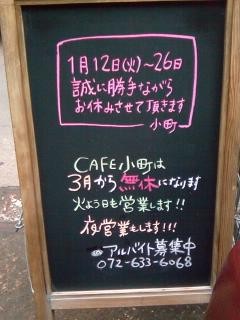 1月12日(火)～26日
誠に勝手ながら
お休みさせて頂きます
小町
CAFE小町は
3月から無休になります
火よう日も営業します!!
夜営業もします!!!
アルバイト募集中
072-633-6068